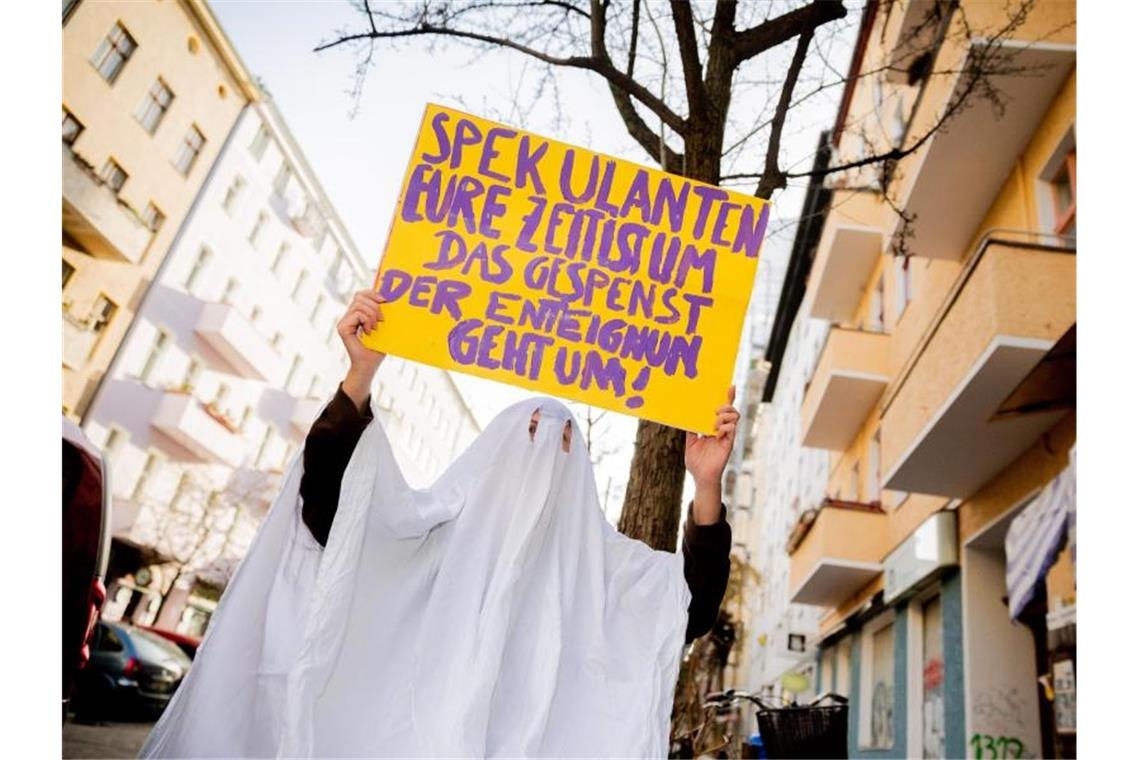 SPEKULANTEN
EURE ZEIT IST UM
DAS GESPENST
DER ENTEIGNUN
GEHT UM!
1312